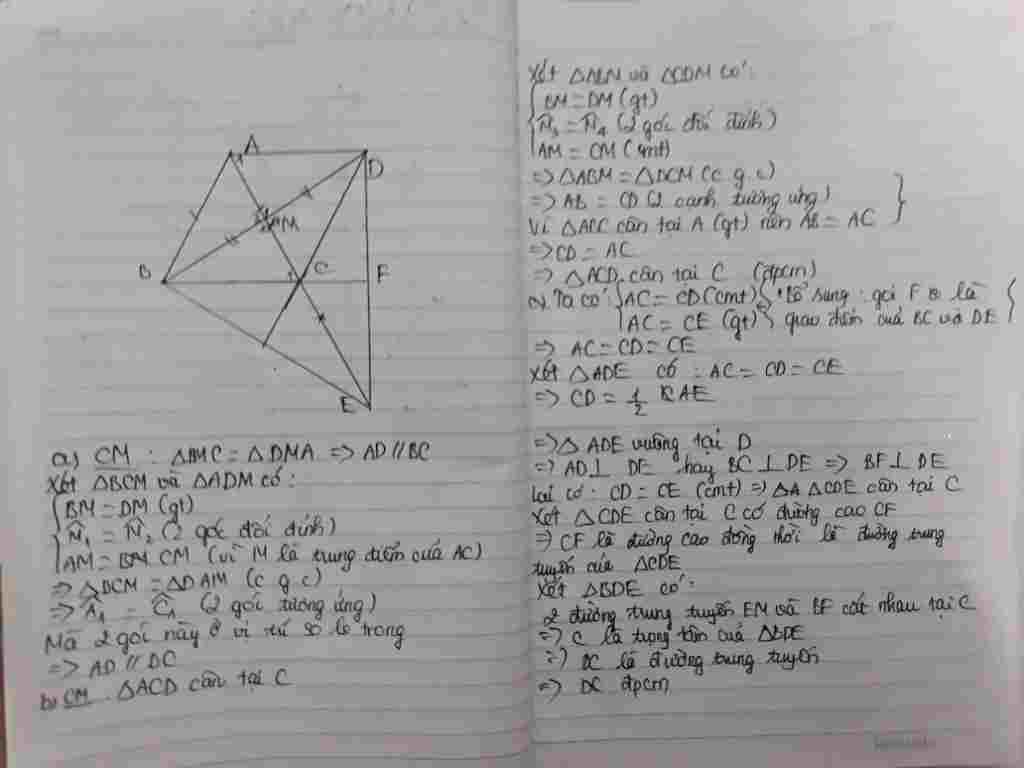 A
D
M
B
C
F
E
a) CM : ΔBMC = ΔDMA => AD // BC
Xét ΔBCM và ΔADM có :
BM = DM (gt)
M̂₁ = M̂₂ (2 góc đối đỉnh)
AM = BM CM (vì M là trung điểm của AC)
=> ΔBCM = ΔDAM (c g c)
=> Â₁ = Ĉ₁ (2 góc tương ứng)
Mà 2 góc này ở vị trí so le trong
=> AD // BC
b) CM ΔACD cân tại C
Xét ΔABM và ΔCDM có :
BM = DM (gt)
M̂₃ = M̂₄ (2 góc đối đỉnh)
AM = CM (cmt)
=> ΔABM = ΔDCM (c g c)
=> AB = CD (2 cạnh tương ứng)
Vì ΔABC cân tại A (gt) nên AB = AC
=> CD = AC
=> ΔACD cân tại C (đpcm)
c) Ta có : AC = CD (cmt) * Bổ sung : gọi F là
AC = CE (gt) giao điểm của BC và DE
=> AC = CD = CE
Xét ΔADE có : AC = CD = CE
=> CD = 1/2 AE
=> Δ ADE vuông tại D
=> AD ⊥ DE hay BC ⊥ DE => BF ⊥ DE
Lại có : CD = CE (cmt) => ΔA ΔCDE cân tại C
Xét ΔCDE cân tại C có đường cao CF
=> CF là đường cao đồng thời là đường trung
tuyến của ΔCDE
Xét ΔBDE có :
2 đường trung tuyến EM và BF cắt nhau tại C
=> C là trọng tâm của ΔBDE
=> DC là đường trung tuyến
=> DC đpcm